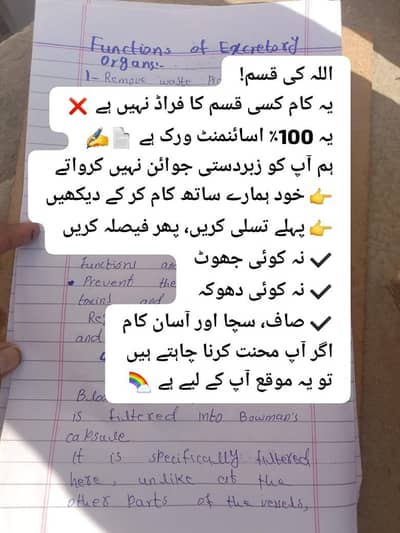 Functions of Excretory
Organs:-
1- Remove waste
اللہ کی قسم!
یہ کام کسی قسم کا فراڈ نہیں ہے ❌
یہ 100٪ اسائنمنٹ ورک ہے 📄✍️
ہم آپ کو زبردستی جوائن نہیں کرواتے
👉 خود ہمارے ساتھ کام کر کے دیکھیں
👉 پہلے تسلی کریں، پھر فیصلہ کریں
✔️ نہ کوئی جھوٹ
✔️ نہ کوئی دھوکہ
✔️ صاف، سچا اور آسان کام
اگر آپ محنت کرنا چاہتے ہیں
تو یہ موقع آپ کے لیے ہے 🌈
functions
• Prevent the
toxins and
and
is filtered into Bowman's
capsule
It is specifically filtered
here, unlike at the
other parts of the vessels,